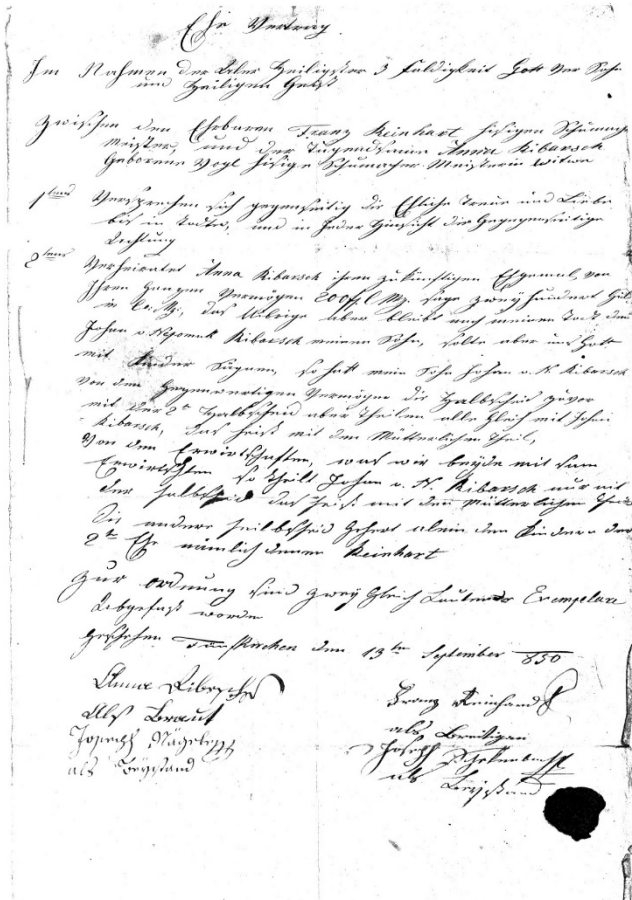 Ehe Vertrag
Im Nahmen der Aller Heiligster 3 faldigkeit Gott Vater Sohn
und Heiligen Geist
Zwischen den Ehrbaren Franz Reinhart hisigen Schumacher
Meister, und der Tugendsame Anna Ribarsch
Geborene Vogl hisige Schumacher Meisterin Witwe
1tens Versprechen sich gegenseitig die Ehliche Treue und Liebe
bis in Tode, und in Jeder Hinsicht die Gegegenseitige
Achtung
2tens Verheiratet Anna Ribarsch ihren zukünftigen Ehgemal, von
Ihren ganzen Vermögen 200 f CMz. sage zweyhundert Guld
in C. Mz., das Uebrige aber bleibt nach meinen Tode dem
Johan v. Nepomuk Ribarsch meinem Sohn, sollte aber uns Gott
mit Kinder Segnen, so hatt mein Sohn Johan v. N. Ribarsch
von dem Gegenwertigen Vermögen die Halbscheid zuvor
mit der 2ten Halbscheid aber Theilen alle gleich mit Johan
Ribarsch, das heist mit dem Mütterlichen Theil,
Von dem Erwirtschaften, was wir beyde mit sam
Erwirtschten so theilt Johan v. N. Ribarsch nur mit
der halbscheid das heist mit den Mütterlichen Theil
die andere Halbscheid Gehert alein den Kindern der
2ten Ehe nämlich denen Reinhart
Zur Ordnung sind zwey gleich Lautende Exemplare
Abgefast worden
Geschehen den 13ten September 850
Anna Ribarsch
Als Braut
Joseph Nägele
als Beystand
Franz Reinhard
als Breitigen
Joseph
als Beystand